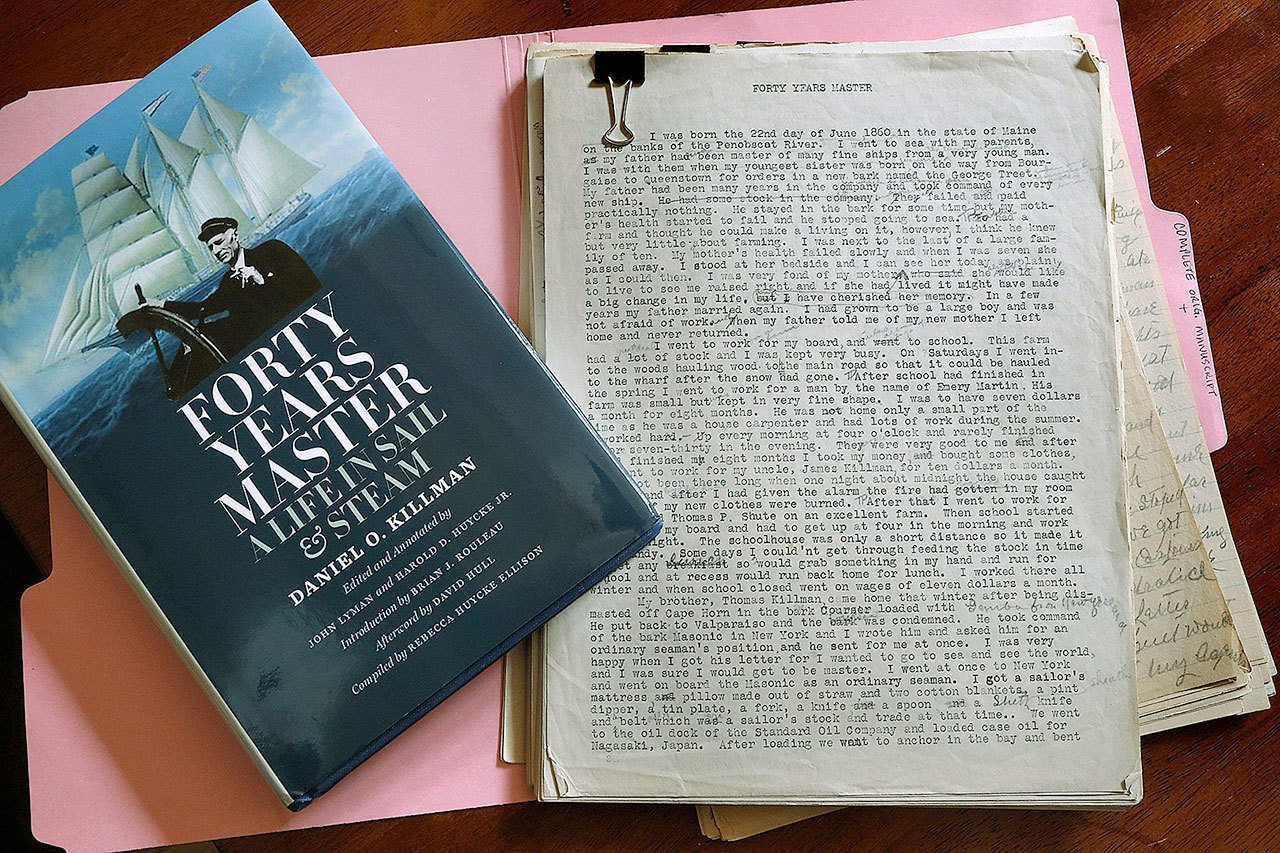 FORTY
YEARS
MASTER
A LIFE IN SAIL
& STEAM
DANIEL O. KILLMAN
Edited and Annotated by
JOHN LYMAN and HAROLD D. HUYCKE JR.
Introduction by BRIAN J. ROULEAU
Afterword by DAVID HULL
Compiled by REBECCA HUYCKE ELLISON
FORTY YEARS MASTER
I was born the 22nd day of June 1860 in the state of Maine
on the banks of the Penobscot River. I went to sea with my parents,
as my father had been master of many fine ships from a very young man.
I was with them when my youngest sister was born on the way from Bour-
gaise to Queenstown for orders in a new bark named the George Treet.
My father had been many years in the company and took command of every
new ship. He had some stock in the company. They failed and paid
practically nothing. He stayed in the bark for some time but my moth-
er's health started to fail and he stopped going to sea. had a
farm and thought he could make a living on it, however, I think he knew
but very little about farming. I was next to the last of a large fam-
ily of ten. My mother's health failed slowly and when I was seven she
passed away. I stood at her bedside and I can see her today as plain
as I could then. I was very fond of my mother who said she would like
to live to see me raised right and if she had lived it might have made
a big change in my life, but I have cherished her memory. In a few
years my father married again. I had grown to be a large boy and was
not afraid of work. When my father told me of my new mother I left
home and never returned.
I went to work for my board and went to school. This farm
had a lot of stock and I was kept very busy. On Saturdays I went in-
to the woods hauling wood to the main road so that it could be hauled
to the wharf after the snow had gone. After school had finished in
the spring I went to work for a man by the name of Emery Martin. His
farm was small but kept in very fine shape. I was to have seven dollars
a month for eight months. He was not home only a small part of the
time as he was a house carpenter and had lots of work during the summer.
worked hard. Up every morning at four o'clock and rarely finished
seven-thirty in the evening. They were very good to me and after
finished my eight months I took my money and bought some clothes,
to work for my uncle, James Killman, for ten dollars a month.
not been there long when one night about midnight the house caught
and after I had given the alarm the fire had gotten in my room
my new clothes were burned. After that I went to work for
Thomas P. Shute on an excellent farm. When school started
my board and had to get up at four in the morning and work
night. The schoolhouse was only a short distance so it made it
Some days I could'nt get through feeding the stock in time
any breakfast so would grab something in my hand and run for
and at recess would run back home for lunch. I worked there all
winter and when school closed went on wages of eleven dollars a month.
My brother, Thomas Killman, came home that winter after being dis-
masted off Cape Horn in the bark Courser loaded with
He put back to Valparaiso and the bark was condemned. He took command
of the bark Masonic in New York and I wrote him and asked him for an
ordinary seaman's position and he sent for me at once. I was very
happy when I got his letter for I wanted to go to sea and see the world,
and I was sure I would get to be master. I went at once to New York
and went on board the Masonic as an ordinary seaman. I got a sailor's
mattress and pillow made out of straw and two cotton blankets, a pint
dipper, a tin plate, a fork, a knife and a spoon and a knife
and belt which was a sailor's stock and trade at that time.. We went
to the oil dock of the Standard Oil Company and loaded case oil for
Nagasaki, Japan. After loading we went to anchor in the bay and bent
COMPLETE ORIG. MANUSCRIPT
+